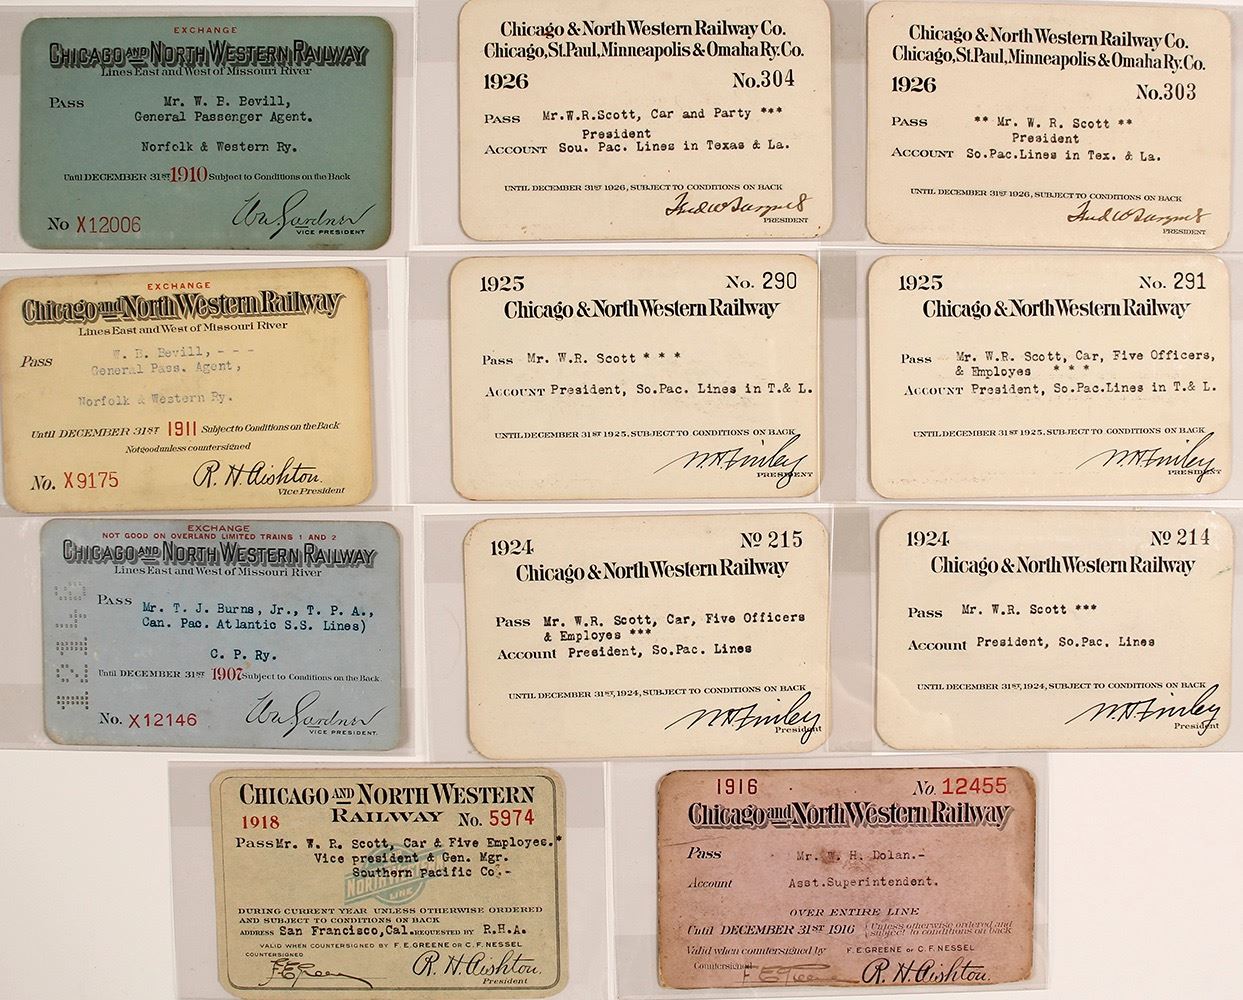 EXCHANGE
CHICAGO AND NORTH WESTERN RAILWAY
Lines East and West of Missouri River
PASS
Mr. W. B. Bevill,
General Passenger Agent.
Norfolk & Western Ry.
Until DECEMBER 31ST 1910 Subject to Conditions on the Back
No X12006
Wm Gardner
VICE PRESIDENT
Chicago & North Western Railway Co.
Chicago, St.Paul, Minneapolis & Omaha Ry. Co.
1926 No.304
PASS Mr.W.R.Scott, Car and Party ***
President
ACCOUNT Sou. Pac. Lines in Texas & La.
UNTIL DECEMBER 31ST 1926, SUBJECT TO CONDITIONS ON BACK
Fred W Sargent
PRESIDENT
Chicago & North Western Railway Co.
Chicago, St.Paul, Minneapolis & Omaha Ry. Co.
1926 No.303
PASS ** Mr. W. R. Scott **
President
ACCOUNT So.Pac.Lines in Tex. & La.
UNTIL DECEMBER 31ST 1926, SUBJECT TO CONDITIONS ON BACK
Fred W Sargent
PRESIDENT
EXCHANGE
Chicago and North Western Railway
Lines East and West of Missouri River
Pass
W. B. Bevill, - - -
General Pass. Agent,
Norfolk & Western Ry.
Until DECEMBER 31ST 1911 Subject to Conditions on the Back
Not good unless countersigned
No. X9175
R. H. Aishton.
Vice President
1925 No. 290
Chicago & North Western Railway
PASS Mr. W.R. Scott * * *
ACCOUNT President, So.Pac. Lines in T.& L.
UNTIL DECEMBER 31ST 1925, SUBJECT TO CONDITIONS ON BACK
W.H. Finley
PRESIDENT
1925 No. 291
Chicago & North Western Railway
PASS Mr. W.R. Scott, Car, Five Officers,
& Employes * * *
ACCOUNT President, So.Pac.Lines in T.& L.
UNTIL DECEMBER 31ST 1925, SUBJECT TO CONDITIONS ON BACK
W.H. Finley
PRESIDENT
EXCHANGE
NOT GOOD ON OVERLAND LIMITED TRAINS 1 AND 2
CHICAGO AND NORTH WESTERN RAILWAY
Lines East and West of Missouri River
PASS
Mr. T. J. Burns, Jr., T. P. A.,
Can. Pac. Atlantic S.S. Lines)
C. P. Ry.
Until DECEMBER 31ST 1907 Subject to Conditions on the Back
No. X12146
Wm Gardner
VICE PRESIDENT.
1924 No 215
Chicago & North Western Railway
Pass Mr. W.R. Scott, Car, Five Officers
& Employes ***
Account President, So.Pac. Lines
UNTIL DECEMBER 31ST, 1924, SUBJECT TO CONDITIONS ON BACK
W.H. Finley
President
1924 No 214
Chicago & North Western Railway
Pass Mr. W.R. Scott ***
Account President, So.Pac. Lines
UNTIL DECEMBER 31ST, 1924, SUBJECT TO CONDITIONS ON BACK
W.H. Finley
President
CHICAGO AND NORTH WESTERN
RAILWAY
1918 No. 5974
Pass Mr. W. R. Scott, Car & Five Employes.*
Vice president & Gen. Mgr.
Southern Pacific Co.-
NORTH WESTERN
LINE
DURING CURRENT YEAR UNLESS OTHERWISE ORDERED
AND SUBJECT TO CONDITIONS ON BACK
ADDRESS San Francisco,Cal. REQUESTED BY R.H.A.
VALID WHEN COUNTERSIGNED BY F. E. GREENE OR C. F. NESSEL
COUNTERSIGNED
F E Greene
R. H. Aishton.
President
1916 No. 12455
Chicago and North Western Railway
Pass Mr. W. H. Dolan.-
Account Asst.Superintendent.
OVER ENTIRE LINE
Until DECEMBER 31ST 1916 Unless otherwise ordered and
subject to conditions on back
Valid when countersigned by F. E. GREENE OR C. F. NESSEL
Countersigned F E Greene
R. H. Aishton.